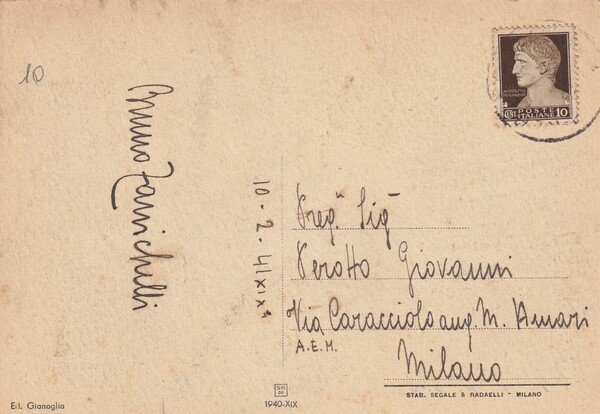 10
Bruno Zanichelli
10-2-41 XIXº
POSTE
ITALIANE
CENT. 10
Preg.º Sigº
Perotto Giovanni
Via Caracciolo ang. M. Amari
A.E.M.
Milano
STAB. SEGALE & RADAELLI - MILANO
Ed. Gianoglio
1940-XIX